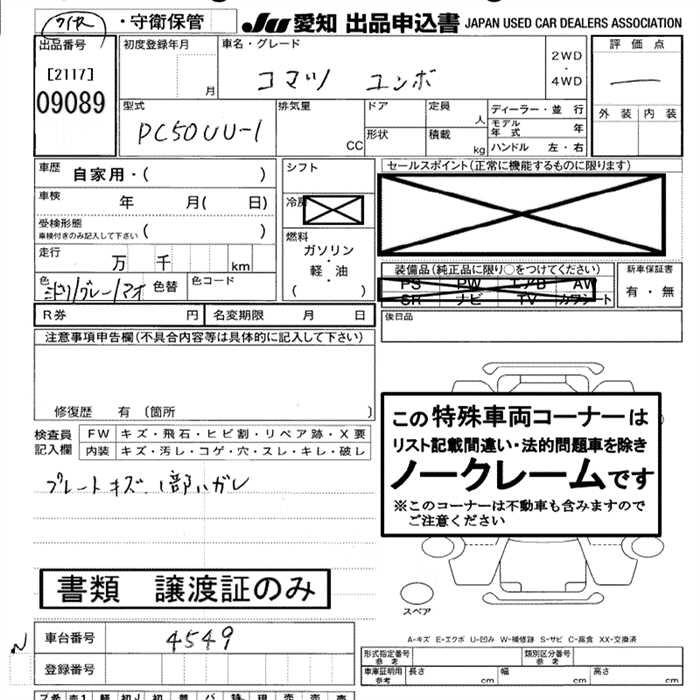 ・守衛保管
JU 愛知 出品申込書 JAPAN USED CAR DEALERS ASSOCIATION
出品番号
[2117]
09089
初度登録年月
月
車名・グレード
コマツ ユンボ
2WD
・
4WD
評価点
外装 内装
型式
PC50UU-1
排気量
CC
ドア
形状
定員
人
積載
kg
ディーラー・並行
モデル年式 年
ハンドル 左・右
車歴
自家用・( )
車検
年 月( 日)
受検形態
車検付きのみ記入して下さい ( )
走行
万 千 km
色
色替
色コード
シフト
冷房
燃料
ガソリン
・
軽・油
・
( )
セールスポイント(正常に機能するものに限ります)
装備品(純正品に限り○をつけてください)
PS PW エアB AW
SR ナビ TV カワシート
新車保証書
有・無
後日品
R券 円
名変期限 月 日
注意事項申告欄(不具合内容等は具体的に記入して下さい)
修復歴 有 〔箇所 〕
検査員
記入欄
FW キズ・飛石・ヒビ割・リペア跡・X要
内装 キズ・汚レ・コゲ・穴・スレ・キレ・破レ
プレートキズ、1部ハガレ
この特殊車両コーナーは
リスト記載間違い・法的問題車を除き
ノークレームです
※このコーナーは不動車も含みますので
ご注意ください
書類 譲渡証のみ
スペア
A-キズ E-エクボ U-凹み W-補修跡 S-サビ C-腐食 XX-交換済
車台番号 4549
登録番号
形式指定番号
参考
類別区分番号
参考
車庫証明用
参考
長さ cm
幅 cm
高さ cm